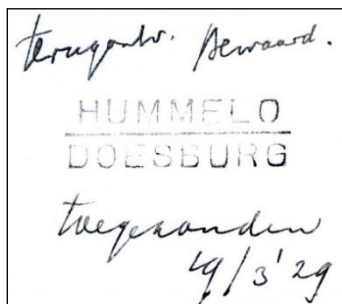 terugontv. Bewaard.
HUMMELO
DOESBURG
toegezonden
19/3 '29